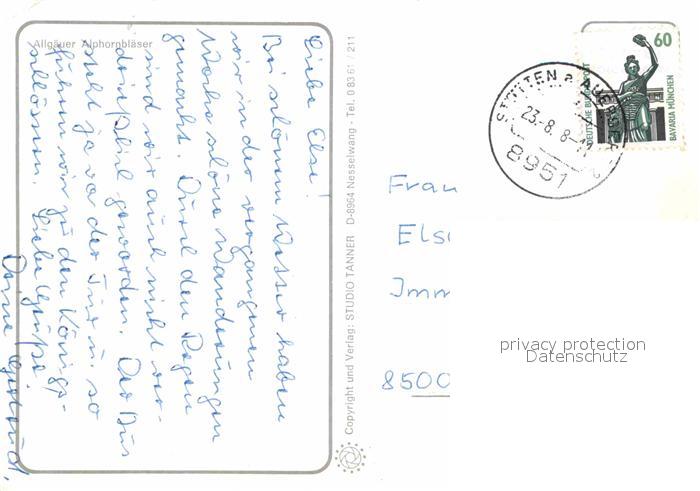 Allgäuer Alphornbläser
Liebe Else!
Bei schönem Wetter haben
wir in der vergangenen
Woche schöne Wanderungen
gemacht. Durch den Regen
sind wir auch nicht ver-
geworden. Der Bus
steht ja vor der Tür u. so
fahren wir zu den Königs-
schlössern. Liebe Grüße!
Deine
Copyright und Verlag: STUDIO TANNER D-8964 Nesselwang - Tel. 0 83 61 / 211
60
DEUTSCHE BUNDESPOST
BAVARIA MÜNCHEN
23.-8. 8
8951
Frau
Els
Imm
8500
privacy protection
Datenschutz